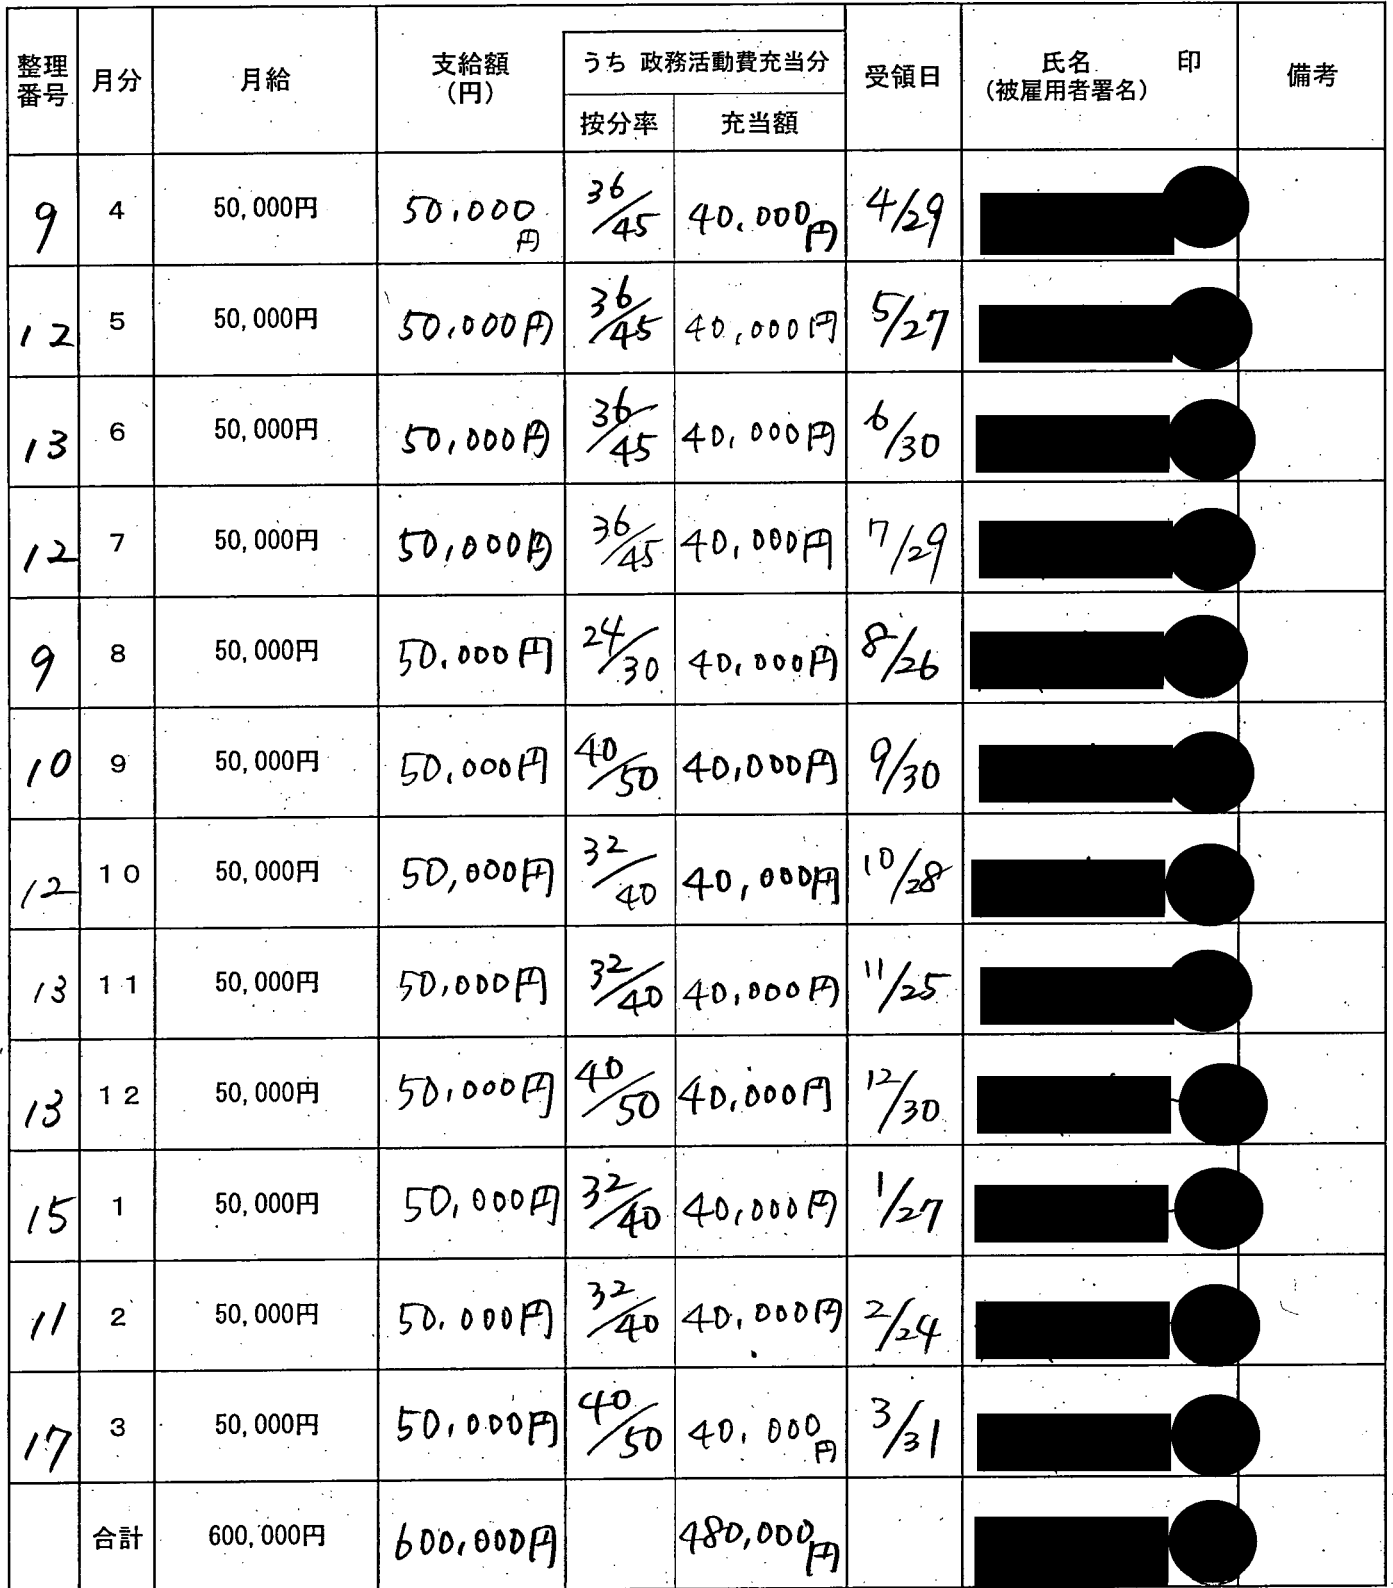 整理番号 月分 月給 支給額(円) うち 政務活動費充当分 受領日 氏名(被雇用者署名) 印 備考
按分率 充当額
9 4 50,000円 50,000円 36/45 40,000円 4/29
12 5 50,000円 50,000円 36/45 40,000円 5/27
13 6 50,000円 50,000円 36/45 40,000円 6/30
12 7 50,000円 50,000円 36/45 40,000円 7/29
9 8 50,000円 50,000円 24/30 40,000円 8/26
10 9 50,000円 50,000円 40/50 40,000円 9/30
12 10 50,000円 50,000円 32/40 40,000円 10/28
13 11 50,000円 50,000円 32/40 40,000円 11/25
13 12 50,000円 50,000円 40/50 40,000円 12/30
15 1 50,000円 50,000円 32/40 40,000円 1/27
11 2 50,000円 50,000円 32/40 40,000円 2/24
17 3 50,000円 50,000円 40/50 40,000円 3/31
合計 600,000円 600,000円 480,000円